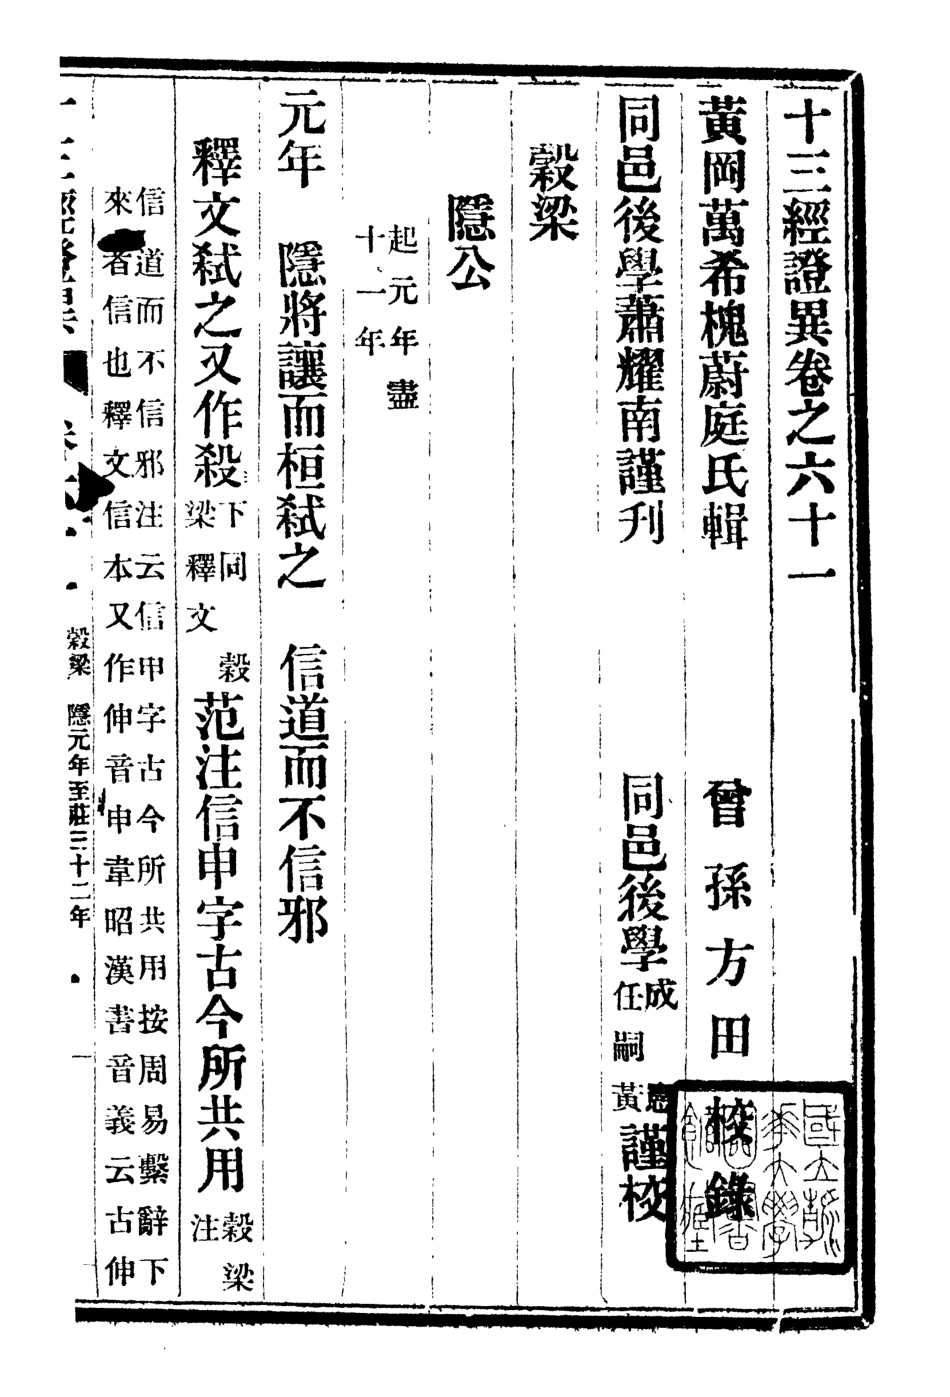 十三經證異卷之六十一
黃岡萬希槐蔚庭氏輯 曾孫方田校錄
同邑後學蕭耀南謹刊 同邑後學成憲任嗣黃謹校
穀梁
隱公
起元年盡
十一年
元年 隱將讓而桓弑之 信道而不信邪
釋文弑之又作殺下同穀梁釋文 范注信申字古今所共用穀梁注
信道而不信邪注云信申字古今所共用按周易繫辭下
來者信也釋文信本又作伸音申韋昭漢書音義云古伸
穀梁 隱元年至莊三十二年 一